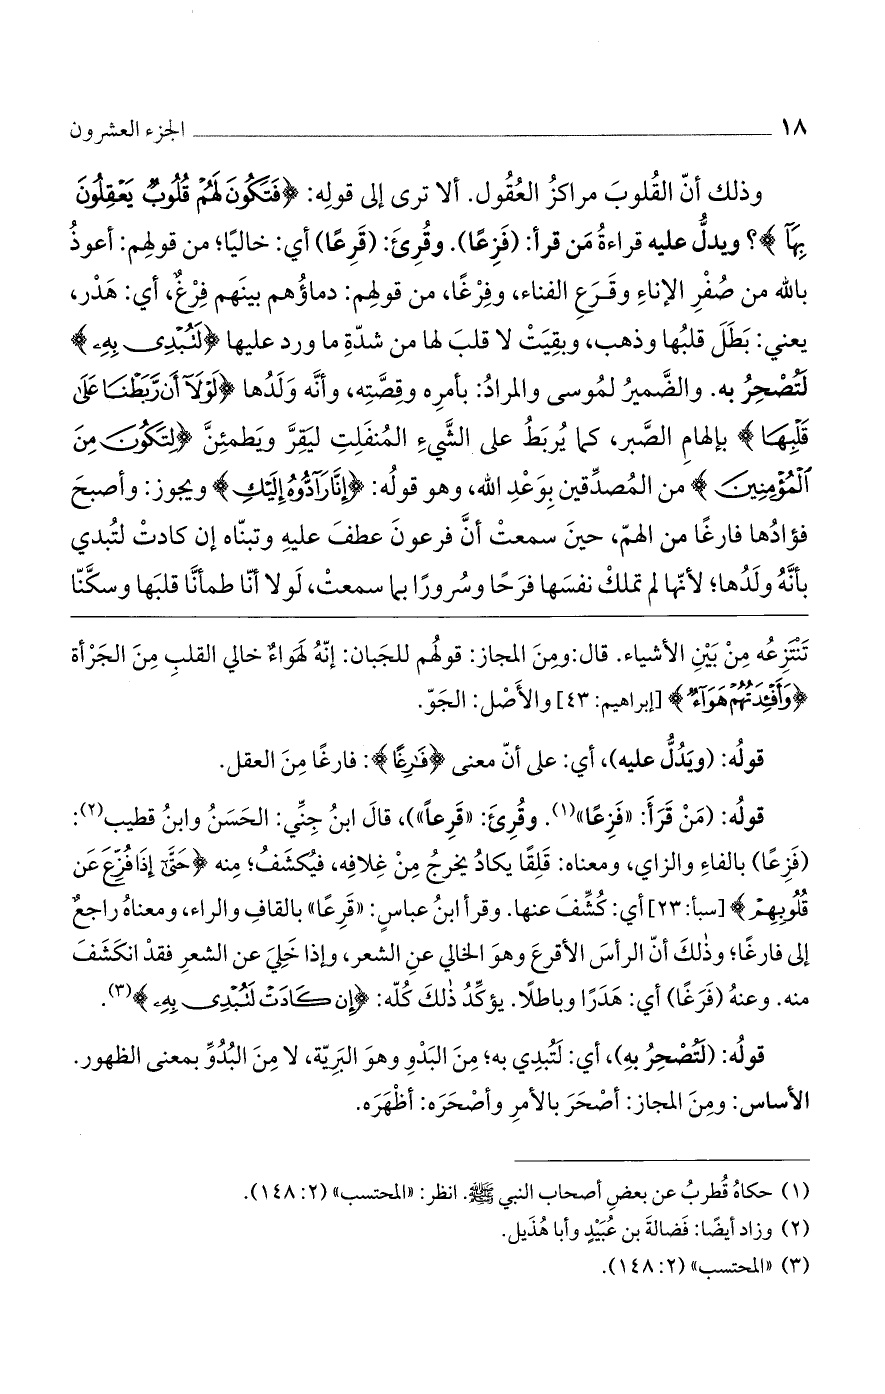 ١٨ الجزء العشرون
وذلك أنّ القُلوبَ مراكزُ العُقُول. ألا ترى إلى قولِه: ﴿فَتَكُونَ لَهُمْ قُلُوبٌ يَعْقِلُونَ
بِهَآ﴾؟ ويدلُّ عليه قراءةُ مَن قرأ: (فَزِعًا). وقُرِئَ: (قَرِعًا) أي: خاليًا؛ من قولهِم: أعوذُ
بالله من صُفْرِ الإناءِ وقَـرَعِ الفناء، وفِرْغًا، من قولهِم: دماؤُهم بينَهم فِرْغٌ، أي: هَدْر،
يعني: بَطَلَ قلبُها وذهب، وبقِيَتْ لا قلبَ لها من شدّةِ ما ورد عليها ﴿لَتُبْدِى بِهِۦ﴾
لَتُصْحِرُ به. والضَّميرُ لمُوسى والمرادُ: بأمرِه وقِصَّتِه، وأنَّه وَلَدُها ﴿لَوْلَآ أَن رَّبَطْنَا عَلَىٰ
قَلْبِهَا﴾ بإلهامِ الصَّبر، كما يُربَطُ على الشَّيءِ المُنفَلِتِ ليَقِرَّ ويَطمئِنَّ ﴿لِتَكُونَ مِنَ
ٱلْمُؤْمِنِينَ﴾ من المُصدِّقين بِوَعْدِ الله، وهو قولُه: ﴿إِنَّا رَآدُّوهُ إِلَيْكِ﴾ ويجوز: وأصبحَ
فؤادُها فارغًا من الهمّ، حينَ سمعتْ أنَّ فرعونَ عطفَ عليهِ وتبنّاه إن كادتْ لتُبدي
بأنَّهُ ولَدُها؛ لأنّها لم تملكْ نفسَها فرَحًا وسُرورًا بما سمعتْ، لَولا أنّا طمأنَّا قلبَها وسكَّنّا
تَنْتَزِعُه مِنْ بَيْنِ الأشياء. قال:ومِنَ المجاز: قولُهم للجَبان: إنّهُ لَهَواءٌ خالي القلبِ مِنَ الجَرْأة
﴿وَأَفْـِٔدَتُهُمْ هَوَآءٌ﴾ [إبراهيم: ٤٣] والأَصْل: الجَوّ.
قولُه: (ويَدُلُّ عليه)، أي: على أنّ معنى ﴿فَـٰرِغًا﴾: فارغًا مِنَ العقل.
قولُه: (مَنْ قَرَأَ: «فَزِعًا»(١). وقُرِئَ: «قَرِعاً»)، قالَ ابنُ جِنِّي: الحَسَنُ وابنُ قطيب(٢):
(فَزِعًا) بالفاءِ والزاي، ومعناه: قَلِقًا يكادُ يخرجُ مِنْ غِلافِه، فيُكشَفُ؛ مِنه ﴿حَتَّىٰٓ إِذَا فُزِّعَ عَن
قُلُوبِهِمْ﴾ [سبأ: ٢٣] أي: كُشِّفَ عنها. وقرأ ابنُ عباسٍ: «قَرِعًا» بالقافِ والراء، ومعناهُ راجعٌ
إلى فارغًا؛ وذٰلكَ أنّ الرأسَ الأقرعَ وهوَ الخالي عنِ الشعر، وإذا خَلِيَ عن الشعرِ فقدْ انكَشَفَ
منه. وعنهُ (فَرَغًا) أي: هَدَرًا وباطلًا. يؤكِّدُ ذٰلكَ كُلَّه: ﴿إِن كَادَتْ لَتُبْدِى بِهِۦ﴾(٣).
قولُه: (لَتُصْحِرُ بهِ)، أي: لَتُبدِي به؛ مِنَ البَدْوِ وهوَ البَرِيّة، لا مِنَ البُدُوِّ بمعنى الظهور.
الأساس: ومِنَ المجاز: أصْحَرَ بالأمرِ وأصْحَرَه: أظْهَرَه.
(١) حكاهُ قُطربُ عن بعضِ أصحاب النبي ﷺ. انظر: «المحتسب» (٢: ١٤٨).
(٢) وزاد أيضًا: فَضالةَ بن عُبَيْدٍ وأبا هُذَيل.
(٣) «المحتسب» (٢: ١٤٨).